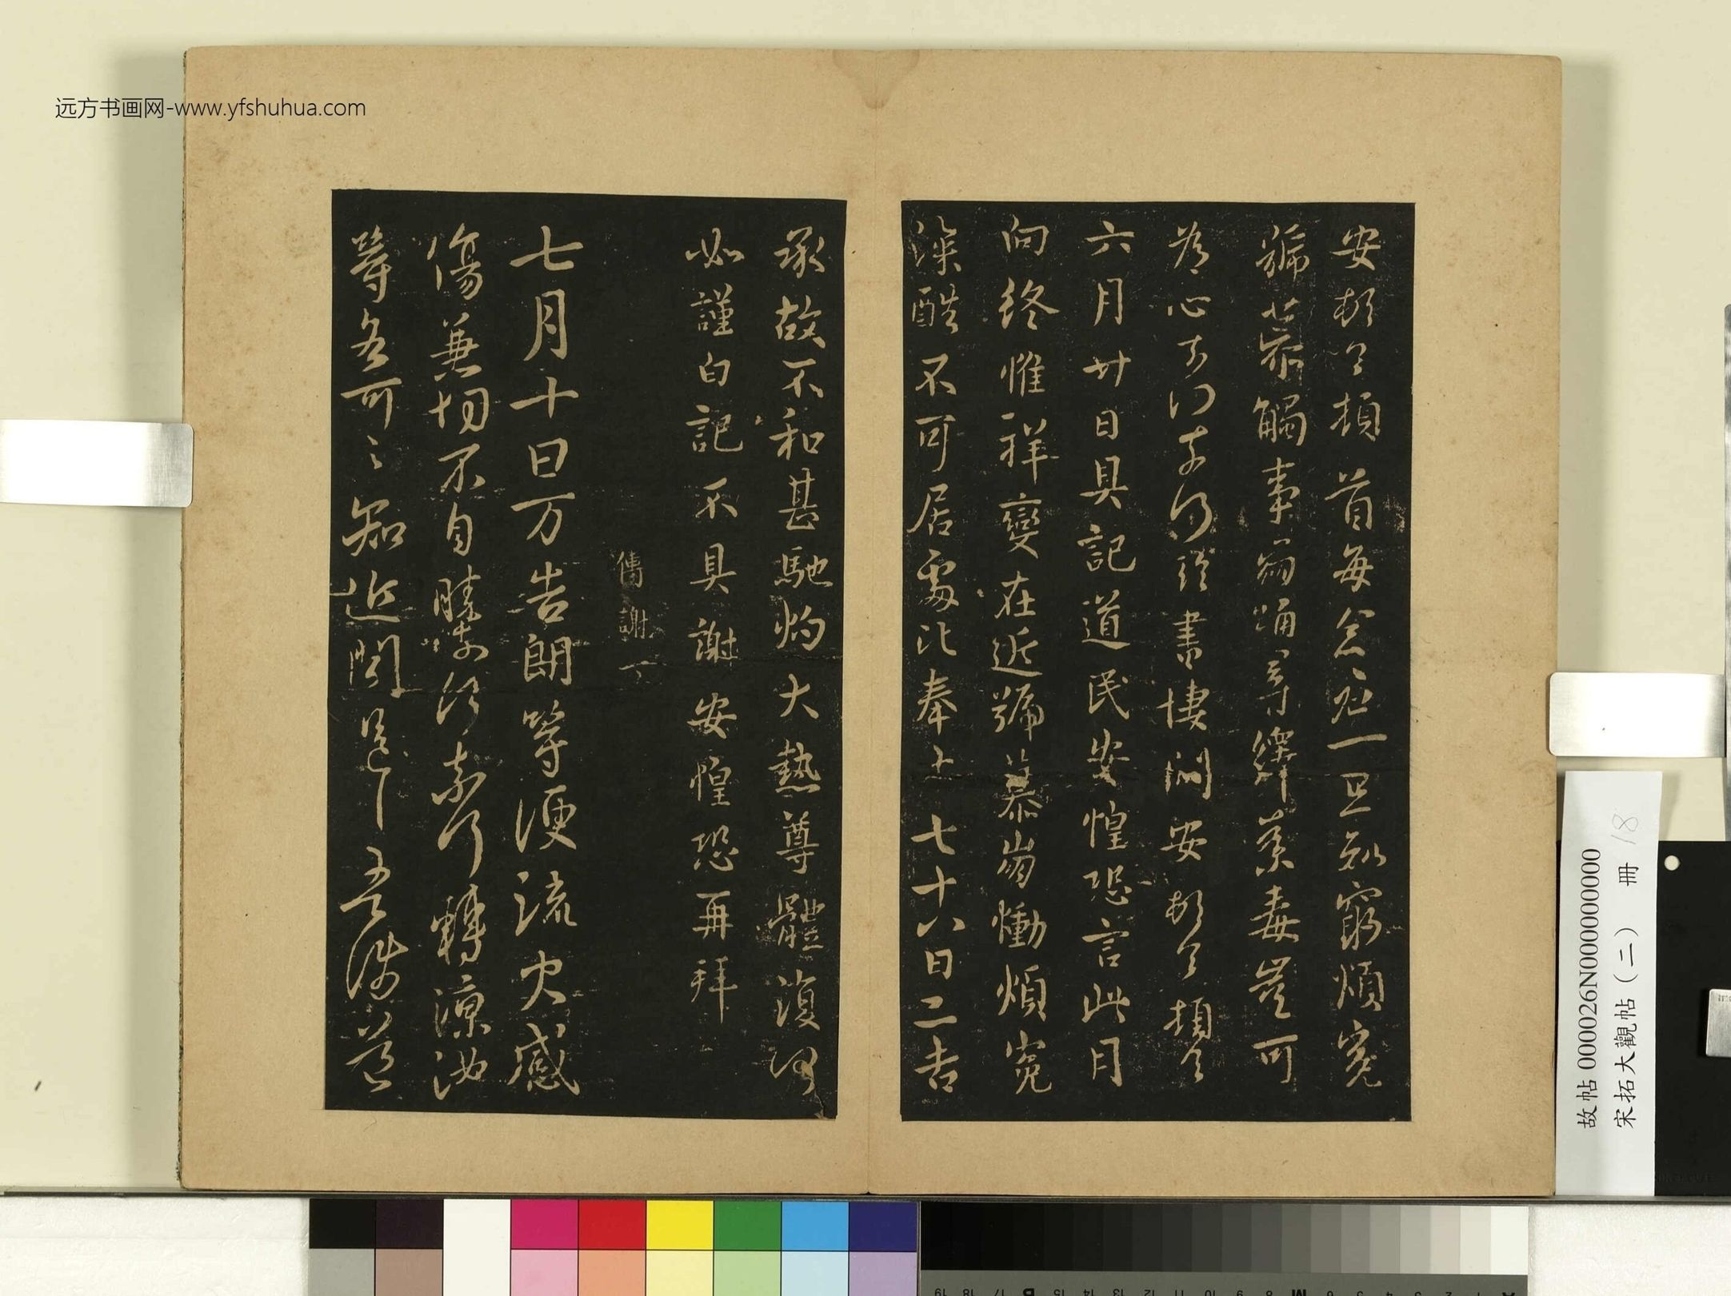 远方书画网-www.yfshuhua.com
安頓首頓首每念君一旦知窮煩冤
號慕觸事崩踊尋繹荼毒豈可
為心奈何奈何臨書悽悶安頓首頓首
六月廿日具記道民安惶恐言此月
向終惟祥變在近號慕崩慟煩冤
深酷不可居處比奉十七十八日二告
承故不和甚馳灼大熱尊體復何
如謹白記不具謝安惶恐再拜
謝
七月十日万告朗等便流火感
傷兼切不自勝奈何奈何轉涼汝
等各可可知近聞邑下
故帖 000026N000000000
宋拓大觀帖（二） 冊 18